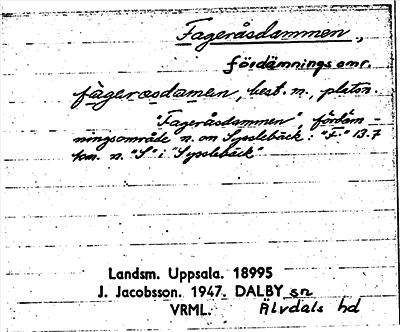 Fageråsdammen,
fördämningsomr.
fàgerasdamen, best. m., platon.
"Fageråsdammen", fördäm
ningsområde n. om Sysslebäck: "F" 13.7
km. n. "S" i "Sysslebäck"
Landsm. Uppsala. 18995
J. Jacobsson. 1947. DALBY sn
VRML. Älvdals hd